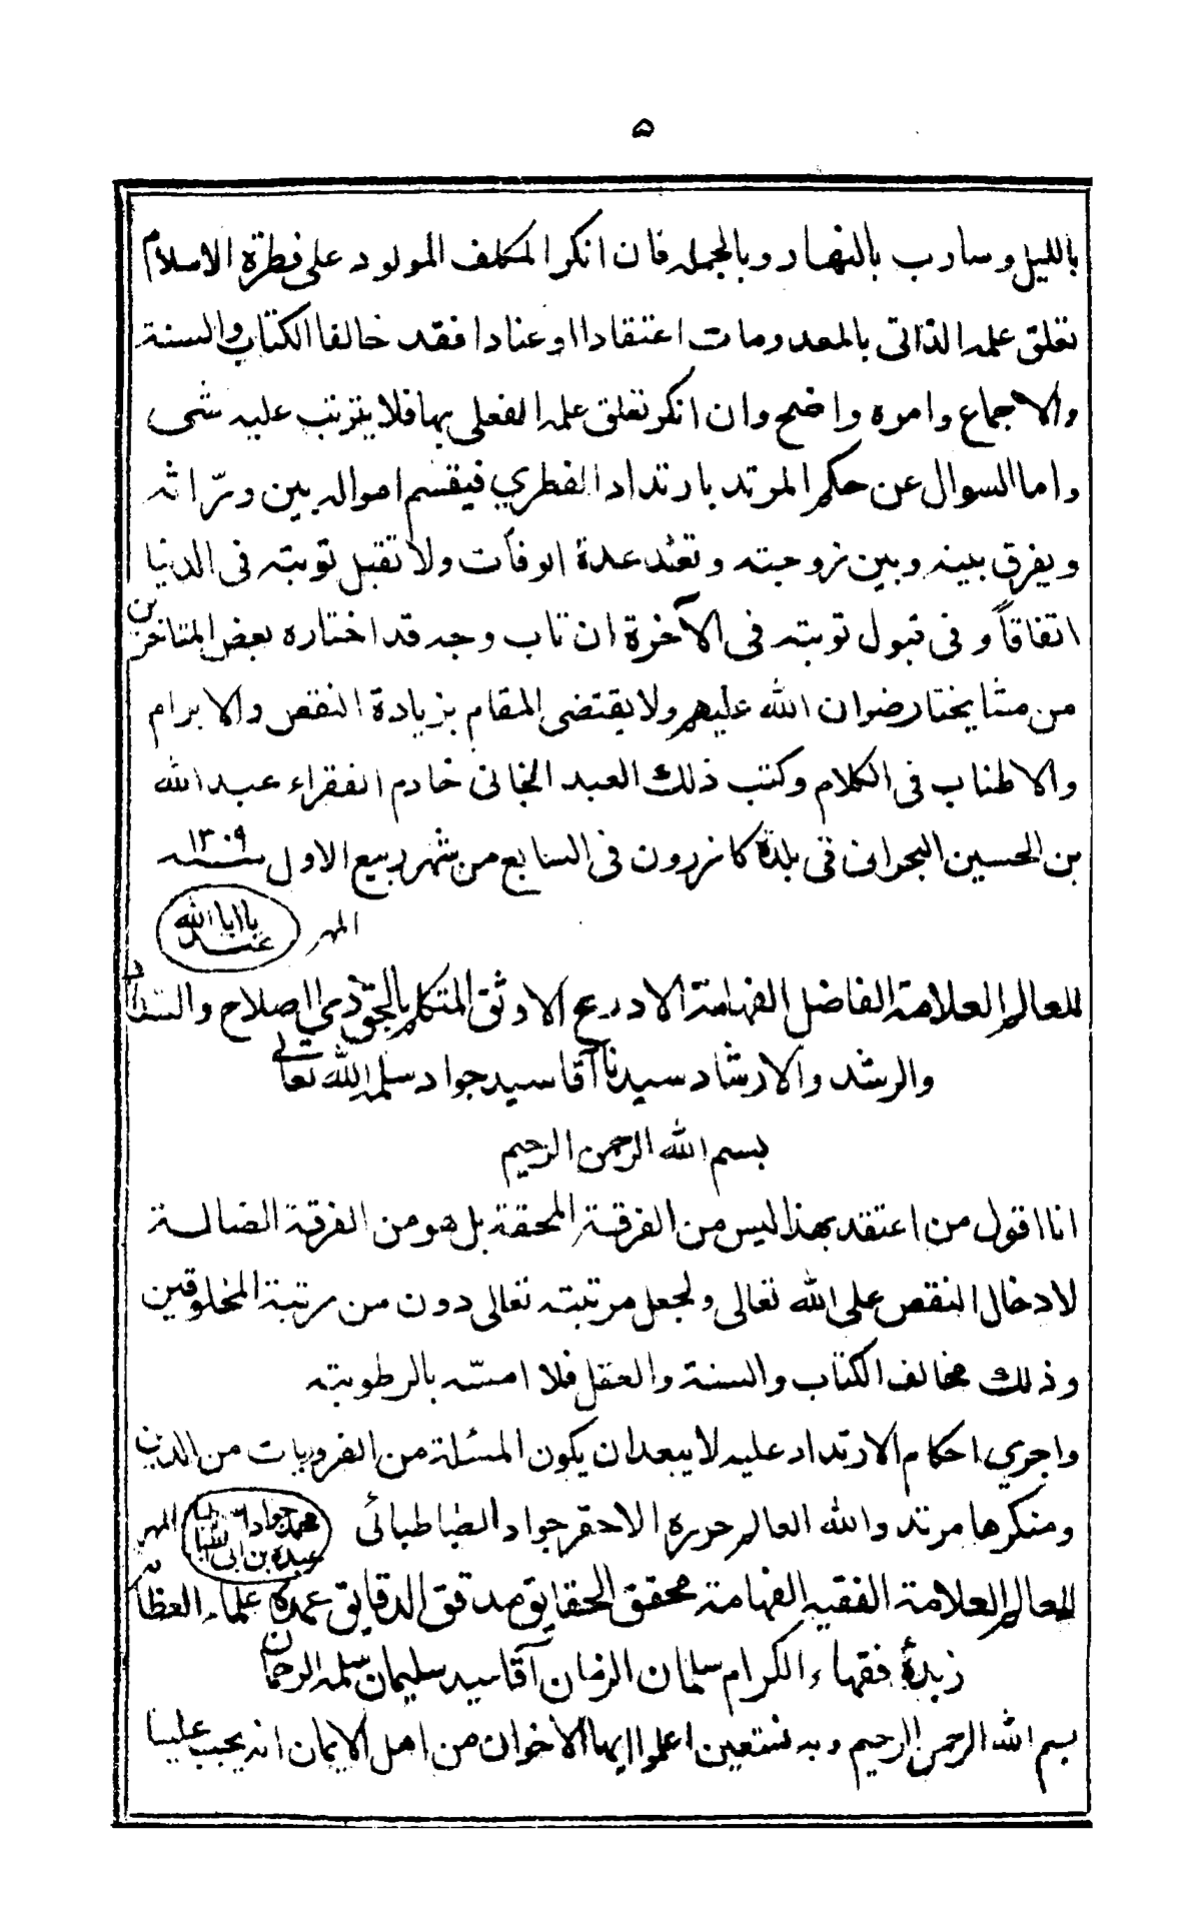 ٥
بالليل وسارب بالنهار وبالجمله فان انكر المكلف المولود على فطرة الاسلام
تعلق علمه الذاتى بالمعدومات اعتقادا او عنادا فقد خالفا الكتاب والسنة
والاجماع وامره واضح وان انكر تعلق علمه الفعلى بها فلا يترتب عليه شى
واما السوال عن حكم المرتد بارتداد الفطري فيقسم امواله بين ورّاثه
ويفرق بينه وبين زوجته وتعتد عدة الوفات ولا تقبل توبته فى الدنيا
اتفاقاً وفى قبول توبته فى الآخرة ان تاب وجه قد اختاره بعض المتاخرين
من مشايخنا رضوان الله عليهم ولا يقتضى المقام بزيادة النقض والابرام
والاطناب فى الكلام وكتب ذلك العبد الجانى خادم الفقراء عبد الله
بن الحسين البحرانى فى بلدة كازرون فى السابع من شهر ربيع الاول سنه ١٣٠٩
المهر يا ابا الله عبد
للعالم العلامة الفاضل الفهامة الاورع الاوثق المتكلم بالحق ذي الصلاح والسداد
والرشد والارشاد سيدنا آقا سيد جواد سلمه الله تعالى
بسم الله الرحمن الرحيم
انا اقول من اعتقد بهذا ليس من الفرقة المحقة بل هو من الفرقة الضالة
لادخال النقص على الله تعالى ولجعل مرتبته تعالى دون من مرتبة المخلوقين
وذلك مخالف الكتاب والسنة والعقل فلا امسّه بالرطوبته
واجري احكام الارتداد عليه لا يبعد ان يكون المسئلة من الضروريات من الدين
ومنكرها مرتد والله العالم حرره الاحقر جواد الطباطبائى المهر محمد جواد عبده بن ابى
للعالم العلامة الفقيه الفهامة محقق الحقايق مدقق الدقايق عمدة علماء العظام
زبدة فقهاء الكرام سلمان الزمان آقا سيد سليمان سلمه الرحمان
بسم الله الرحمن الرحيم وبه نستعين اعلموا ايها الاخوان من اهل الايمان انه يجب علينا